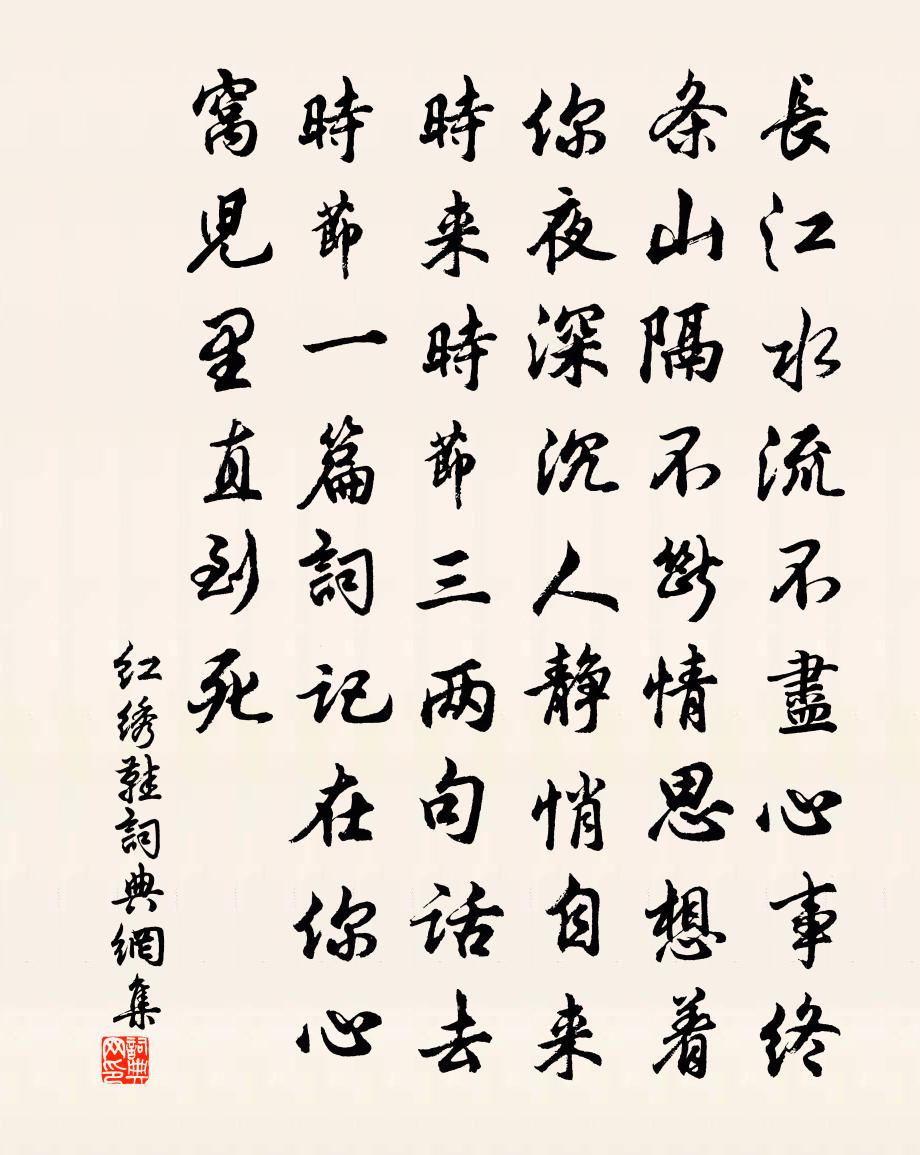 長江水流不盡心事終
条山隔不斷情思想着
你夜深沉人静悄自来
時来時節三两句话去
時節一篇詞记在你心
窝児里直到死
红绣鞋詞典網集
詞典网印